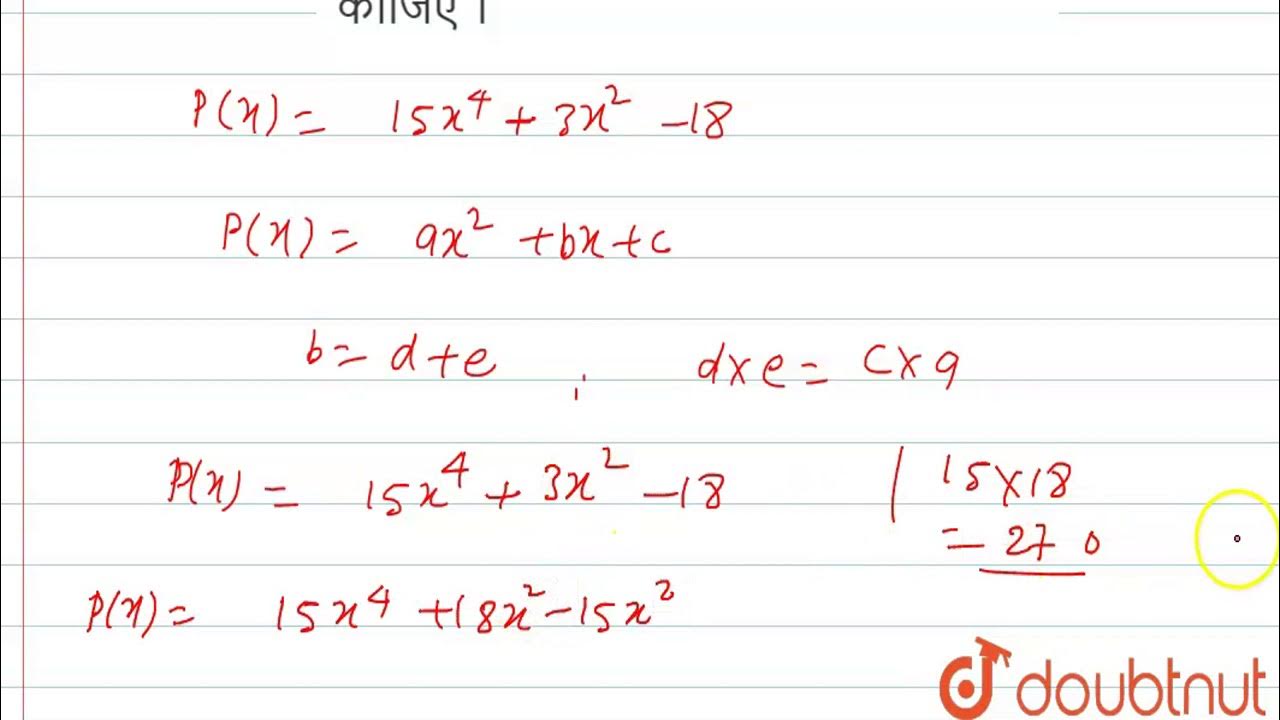 कीजिए ।
P(x) = 15x⁴ + 3x² - 18
P(x) = ax² + bx + c
b = d + e ; d × e = c × a
P(x) = 15x⁴ + 3x² - 18 | 15 × 18
= 270
P(x) = 15x⁴ + 18x² - 15x²
doubtnut